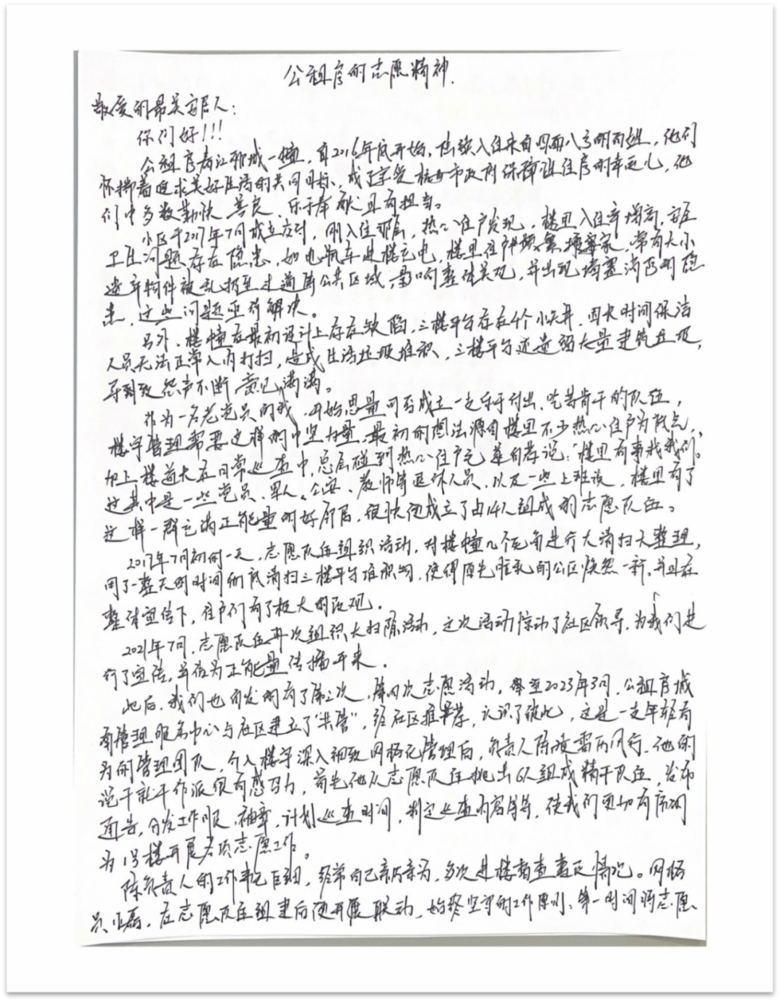 公租房的志愿精神
最爱的最美邻居人：
你们好!!!
公租房春江郦城一幢，自2016年底开始，陆续入住来自四面八方的百姓，他们
怀揣着追求美好生活的共同目标，成了享受杭州市政府保障性住房的幸运儿，他
们中多数勤快、善良、乐于奉献且有担当。
小区于2017年7月成立，刚入住那会，热心住户发现，楼里入住率增高，
卫生问题存在隐患，如电瓶车进楼充电，楼里住户频繁搬家，常有大小
遗弃物件被乱扔至过道属公共区域，影响整体美观，并出现堵塞消防的隐
患，这些问题亟待解决。
另外，楼幢在最初设计上存在缺陷，三楼平台存在4个小天井，因长时间保洁
人员无法正常入内打扫，造成生活垃圾堆积，三楼平台还遗留大量建筑垃圾，
导致怨声不断，意见满满。
作为一名老党员的我，开始思量可否成立一支乐于付出、吃苦肯干的队伍，
楼宇管理需要这样的中坚力量，最初的想法源自楼里不少热心住户为散点，
加上楼道长在日常巡查中，总层碰到热心住户毛遂自荐说：“楼里有事找我们。”
这其中是一些党员、军人、公安、教师等退休人员，以及一些上班族，楼里有了
这样一群充满正能量的好邻居，很快便成立了由14人组成的志愿队伍。
2017年7月初的一天，志愿队伍组织活动，对楼幢几个死角进行大清扫大整理，
用了一整天的时间彻底清扫三楼平台堆积物，使得原先脏乱的公区焕然一新，并且在
整体宣传下，住户们有了极大的改观。
2021年7月，志愿队伍再次组织大扫除活动，这次活动惊动了社区领导，为我们进
行了宣传，并有为正能量传播开来。
此后，我们也自发的有了第三次、第四次志愿活动，直至2023年3月，公租房城
南管理服务中心与社区建立了“共管”，经社区推举，认识了彼此，这是一支年轻有
为的管理团队，介入楼宇深入细致网格化管理后，负责人陈波雷厉风行，他的
说干就干作派很有感召力，首先他从志愿队伍挑出6人组成精干队伍，发布
通告，分发工作服、袖章，计划巡查时间，制定巡查内容等等，使我们更加有序的
为1号楼开展各项志愿工作。
陈负责人的工作事无巨细，经常自己亲历亲为，多次进楼督查查反馈情况。网格
员小磊，在志愿队伍组建后便开展联动，始终坚守的工作原则：第一时间将志愿